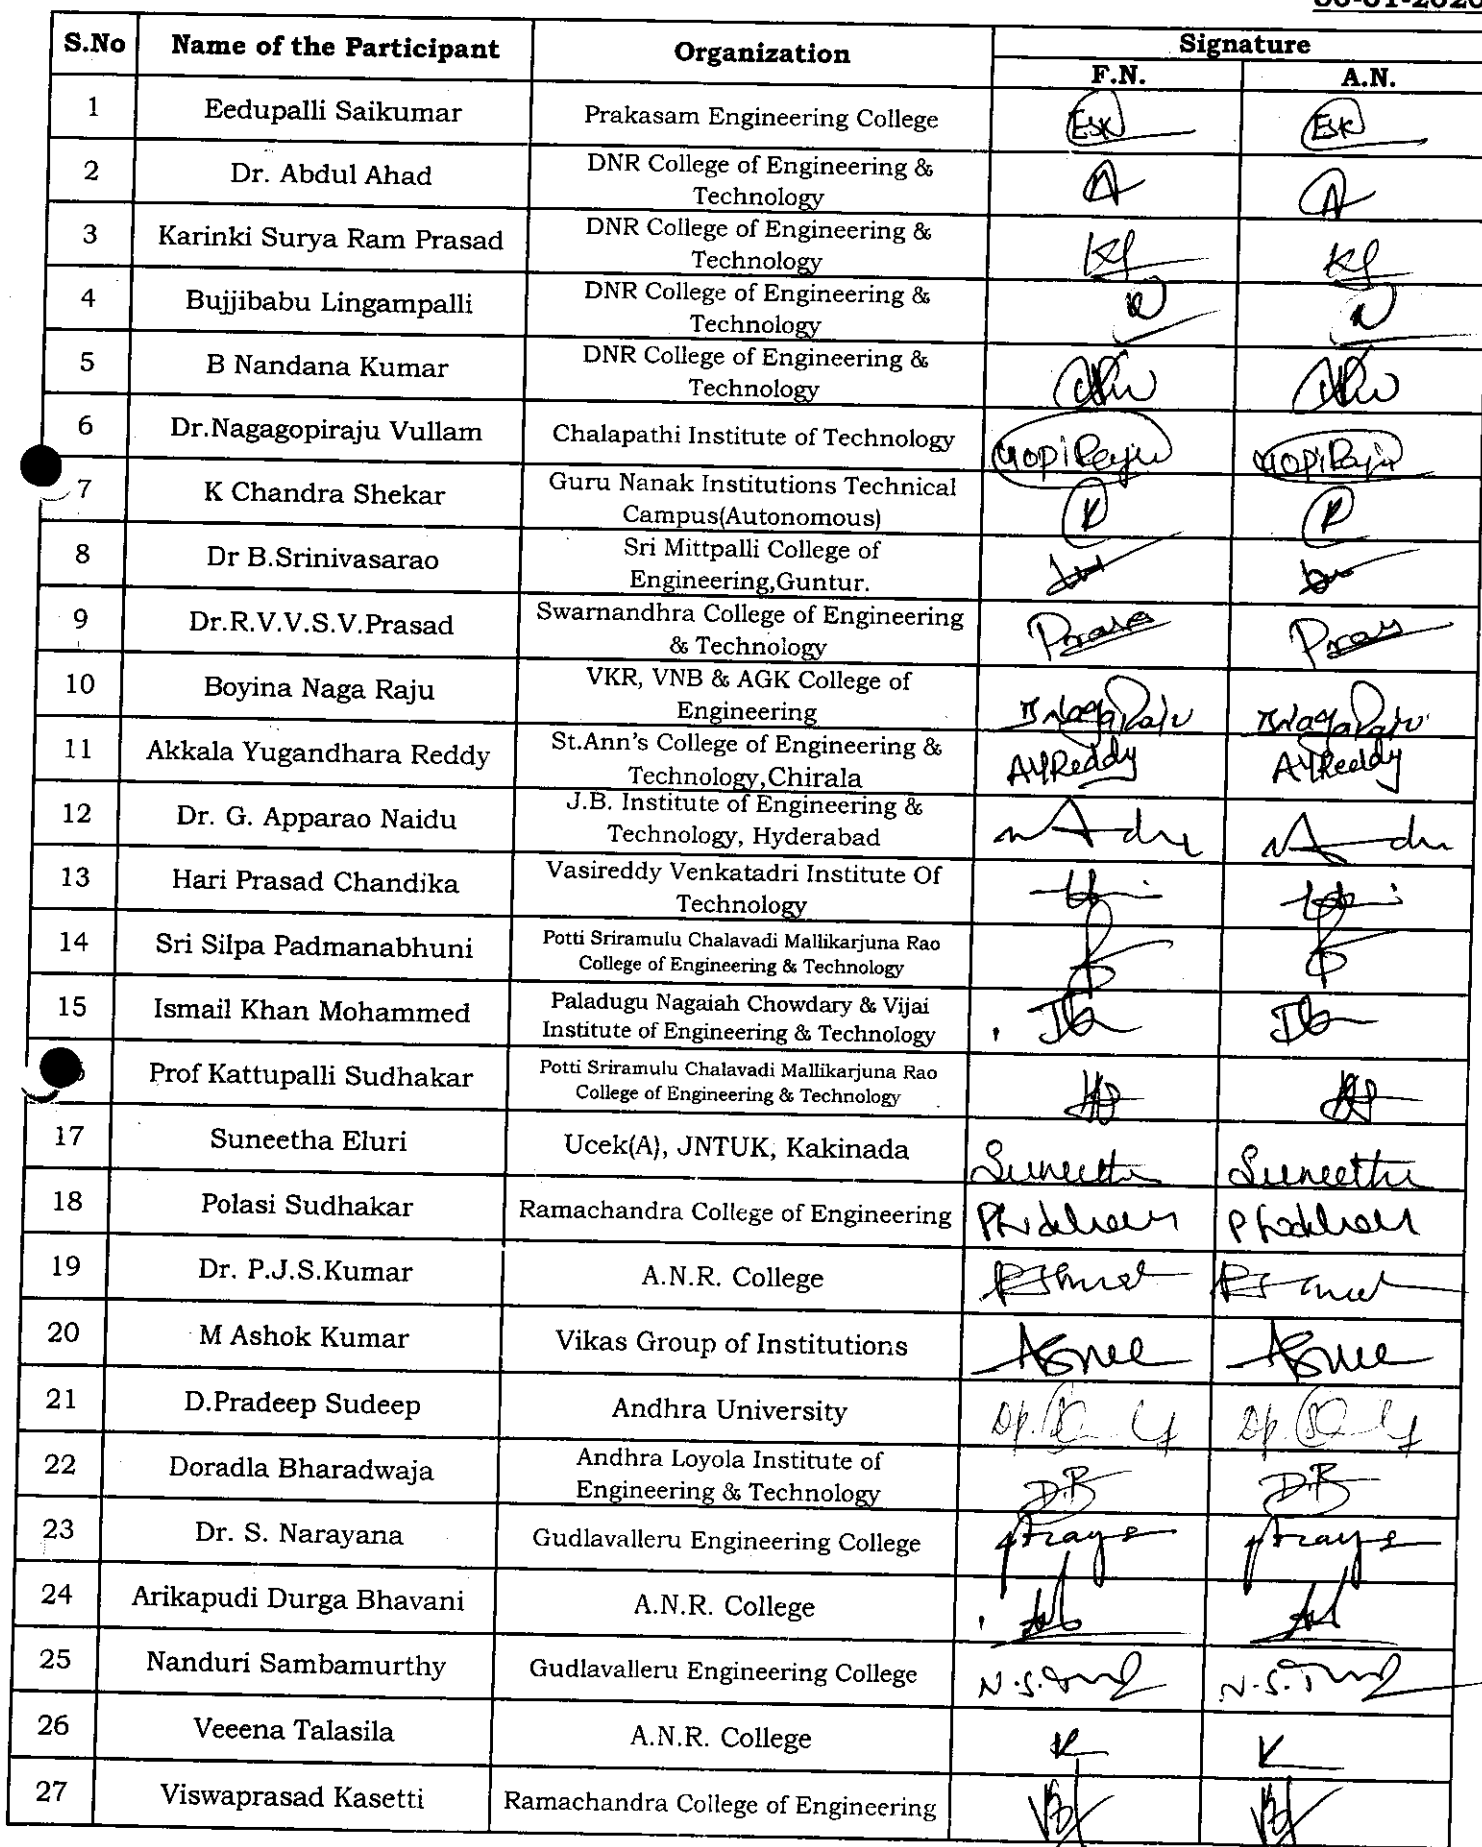 S.No Name of the Participant Organization Signature
F.N. A.N.
1 Eedupalli Saikumar Prakasam Engineering College ESK ESK
2 Dr. Abdul Ahad DNR College of Engineering &
Technology
3 Karinki Surya Ram Prasad DNR College of Engineering &
Technology
4 Bujjibabu Lingampalli DNR College of Engineering &
Technology
5 B Nandana Kumar DNR College of Engineering &
Technology
6 Dr.Nagagopiraju Vullam Chalapathi Institute of Technology GopiRaju GopiRaju
7 K Chandra Shekar Guru Nanak Institutions Technical
Campus(Autonomous)
8 Dr B.Srinivasarao Sri Mittpalli College of
Engineering,Guntur.
9 Dr.R.V.V.S.V.Prasad Swarnandhra College of Engineering
& Technology
10 Boyina Naga Raju VKR, VNB & AGK College of
Engineering BNagaRaju BNagaRaju
11 Akkala Yugandhara Reddy St.Ann's College of Engineering &
Technology,Chirala AYReddy AYReddy
12 Dr. G. Apparao Naidu J.B. Institute of Engineering &
Technology, Hyderabad
13 Hari Prasad Chandika Vasireddy Venkatadri Institute Of
Technology
14 Sri Silpa Padmanabhuni Potti Sriramulu Chalavadi Mallikarjuna Rao
College of Engineering & Technology
15 Ismail Khan Mohammed Paladugu Nagaiah Chowdary & Vijai
Institute of Engineering & Technology
Prof Kattupalli Sudhakar Potti Sriramulu Chalavadi Mallikarjuna Rao
College of Engineering & Technology
17 Suneetha Eluri Ucek(A), JNTUK, Kakinada Suneetha Suneetha
18 Polasi Sudhakar Ramachandra College of Engineering
19 Dr. P.J.S.Kumar A.N.R. College
20 M Ashok Kumar Vikas Group of Institutions
21 D.Pradeep Sudeep Andhra University
22 Doradla Bharadwaja Andhra Loyola Institute of
Engineering & Technology DB DB
23 Dr. S. Narayana Gudlavalleru Engineering College
24 Arikapudi Durga Bhavani A.N.R. College
25 Nanduri Sambamurthy Gudlavalleru Engineering College
26 Veeena Talasila A.N.R. College
27 Viswaprasad Kasetti Ramachandra College of Engineering